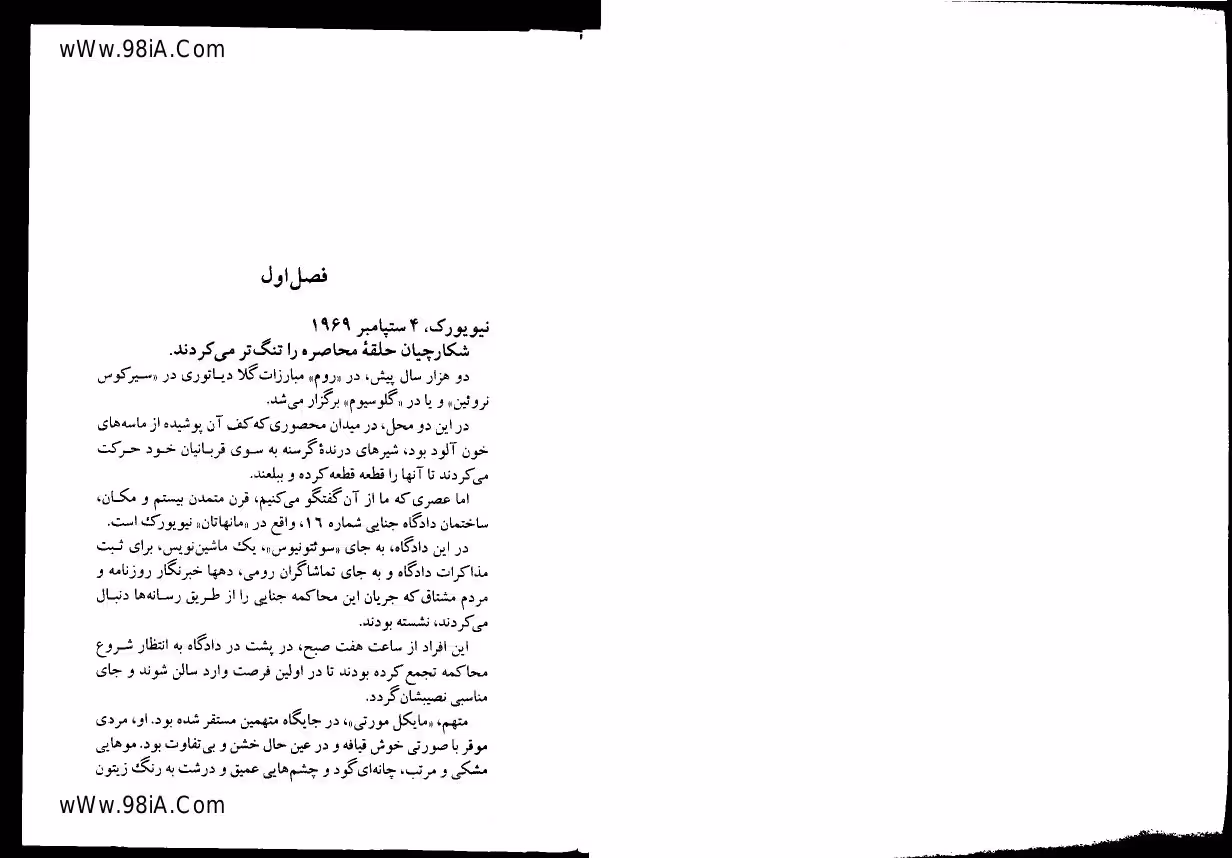 wWw.98iA.Com
فصل اول
نیویورک، ۴ ستپامبر ۱۹۶۹
شکارچیان حلقهٔ محاصره را تنگ‌تر می‌کردند.
دو هزار سال پیش، در «روم» مبارزات گلا دیـاتوری در «سـیرکوس
نروئین» و یا در «گلوسیوم» برگزار می‌شد.
در این دو محل، در میدان محصوری که کف آن پوشیده از ماسه‌های
خون آلود بود، شیرهای درندهٔ گرسنه به سوی قربـانیان خـود حـرکت
می‌کردند تا آنها را قطعه قطعه کرده و ببلعند.
اما عصری که ما از آن گفتگو می‌کنیم، قرن متمدن بیستم و مکـان،
ساختمان دادگاه جنایی شماره ۱۶، واقع در «مانهاتان» نیویورک است.
در این دادگاه، به جای «سوئتونیوس»، یک ماشین‌نویس، برای ثـبت
مذاکرات دادگاه و به جای تماشاگران رومی، دهها خبرنگار روزنامه و
مردم مشتاق که جریان این محاکمه جنایی را از طریق رسـانه‌ها دنبـال
می‌کردند، نشسته بودند.
این افراد از ساعت هفت صبح، در پشت در دادگاه به انتظار شـروع
محاکمه تجمع کرده بودند تا در اولین فرصت وارد سالن شوند و جای
مناسبی نصیبشان گردد.
متهم، «مایکل مورتی»، در جایگاه متهمین مستقر شده بود. او، مردی
موقر با صورتی خوش قیافه و در عین حال خشن و بی‌تفاوت بود. موهایی
مشکی و مرتب، چانه‌ای گود و چشم‌هایی عمیق و درشت به رنگ زیتون
wWw.98iA.Com